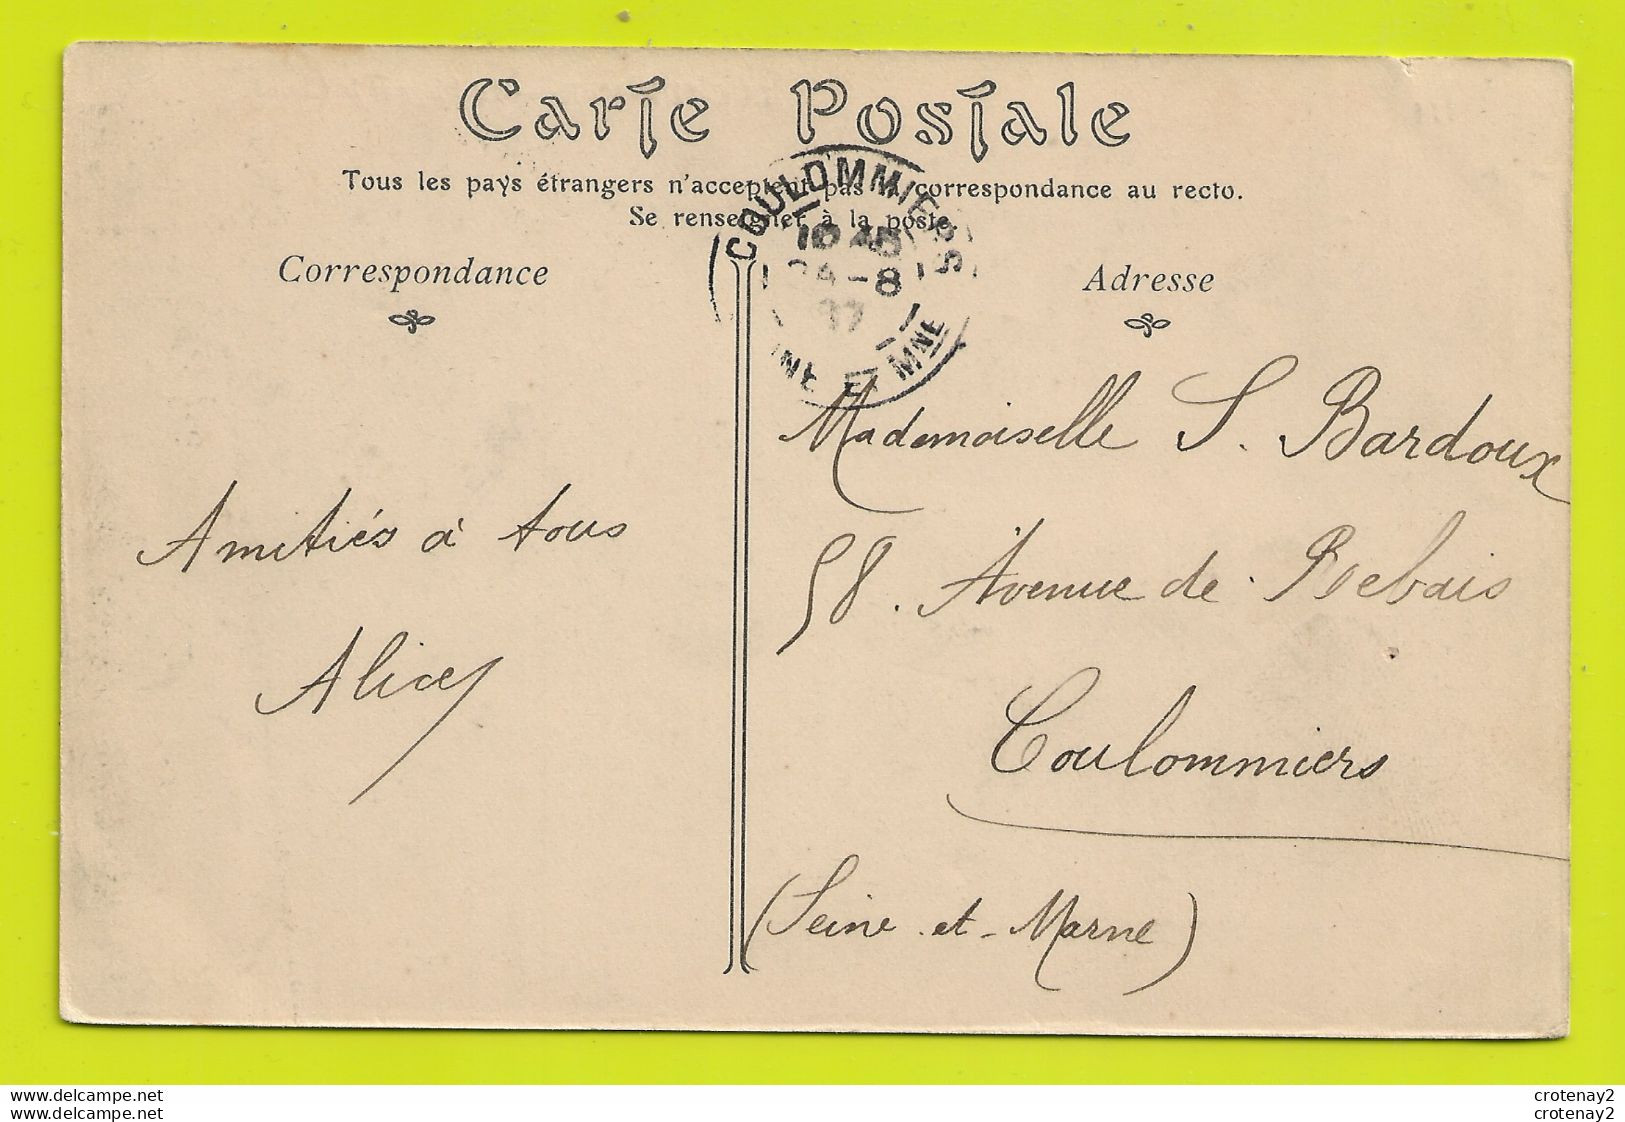 Carte Postale
Tous les pays étrangers n'acceptent pas la correspondance au recto.
Se renseigner à la poste.
COULOMMIERS
24 - 8
NE ET MNE
Correspondance
Adresse
Mademoiselle S. Bardoux
58. Avenue de Rebais
Coulommiers
(Seine-et-Marne)
Amitiés à tous
Alice
www.delcampe.net
www.delcampe.net
crotenay2
crotenay2